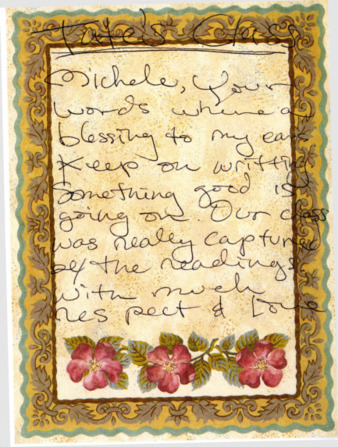 Tate's Class
Michele, Your
words where a
blessing to my ears
Keep on writting
Something good is
going on. Our class
was really captured
by the readings
with much
respect & Love